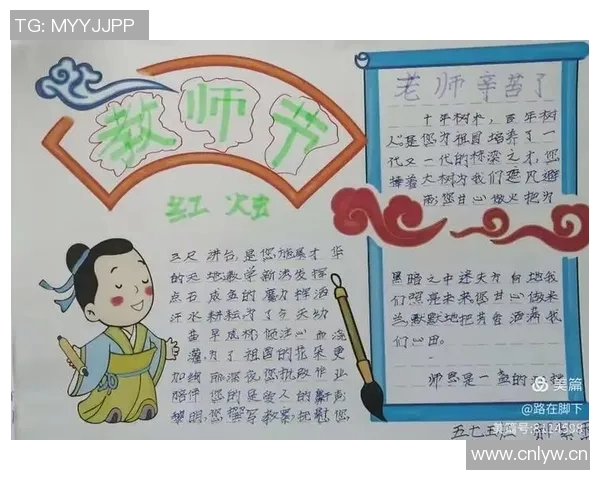 TG: MYYJJPP
教师节
红烛
三尺讲台,是您施展才华
的天地教学新法发挥
点石成金的魔力挥洒
汗水耕耘为了今天幼
苗早成栋倾注心血浇
灌为了祖国的花朵更
加绚丽深夜,您批改作业
陪伴您的是
黎明,您撰写教案
老师辛苦了
十年树木,百年树
人是您为祖国培养了一
代又一代的栋梁之才,您
撑着大树为我们遮风避
雨您甘心做火把为
黑暗之中迷失方向地我
们照亮未来您甘心做米
兰默默地把芳香洒满我
们心田。
师恩是一盏的
美篇
@路在脚下
美篇号:8124598
www.cnlyw.cn